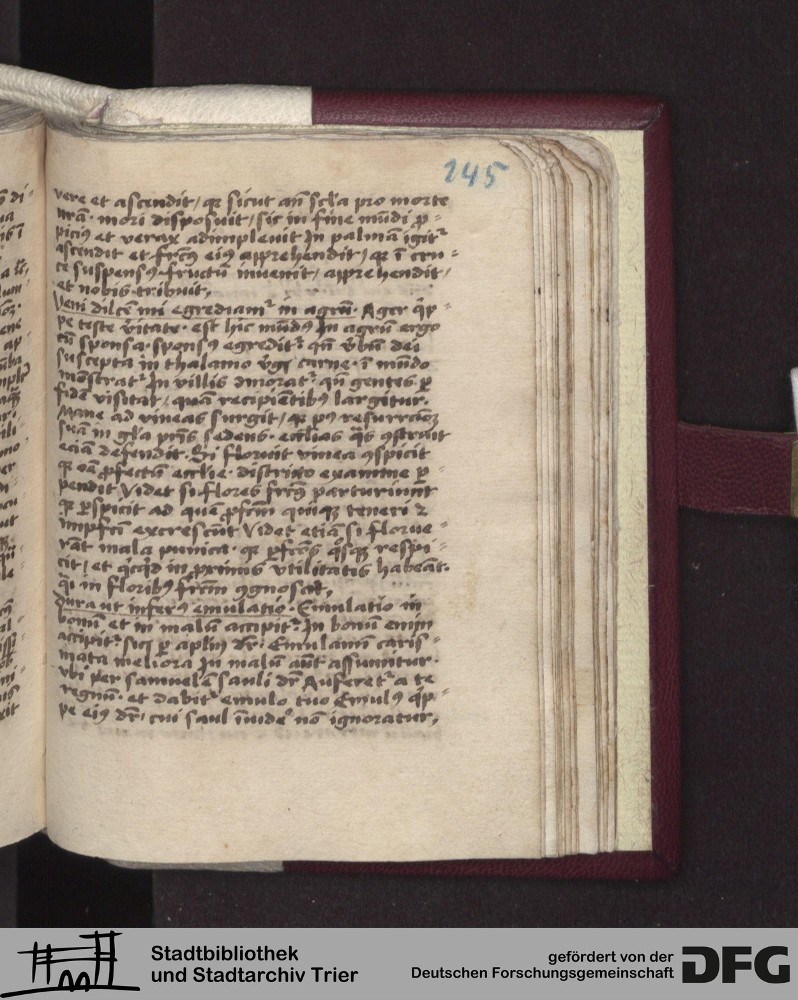 245
vere et ascendit / qr sicut an̄ scl̄a pro morte
nr̄a · mori disposuit / sic in fine mūdi ꝓ=
piciꝰ et verax adimplevit In palmā igitᷣ
ascendit et fr̄cꝰ eiꝰ apprehendit / qr ī cru=
ce suspensꝰ fructū invenit / apprehendit /
et nobis tribuit,
Veni dilc̄e mi egrediamᷣ in agrū · Ager q̇p=
pe teste v̇itate · est hic mūdꝰ In agrū ergo
cū sponsa · sponsꝰ egreditᷣ qn̄ v̇bū dei
suscepta in thalamo v̇gꝭ carne · ī mūdo
mōstratᷣ In villis ꝯmoratᷣ qn̄ gentes ꝑ
fidē visitat / quā recipiētibꝰ largitur ·
Mane ad vineas surgit / qr pꝰ resurrcōꝫ
suā in gl̄a pr̄is sedens · eccl̄ias q̄s ꝯstruit
eciā defendit · Si floruit vinea ꝯspicit
qr ꝓfectū eccl̄ie · districto examine ꝑ=
pendit Videt si flores fr̄cꝰ parturiunt
qr ꝑspicit ad quē ꝓfc̄m quiqꝫ teneri ⁊
impfc̄i excrescūt Videt etiā si florue=
rāt mala punica · qr ꝑfc̄os q̊sqꝫ respi=
cit / et q̇cq̇d in primis vtilitatis habeāt ·
q̇i in floribꝰ fr̄cm ꝯgnoscit,
Dura ut inferꝰ emulatio · Emulatio in
bonū et in malū accipitᷣ In bonū enim
accipitᷣ sicꝫ ꝑ aplm̄ dr̄ · Emulamī caris=
mata meliora In malū aūt assumitur ·
vbi per samuelē sauli dr̄ Auferetᷣ a te
regnū · et dabitᷣ emulo tuo Emulꝰ q̇p=
pe eiꝰ dr̄ / cui saul īvidē nō ignoratur,
Stadtbibliothek
und Stadtarchiv Trier
gefördert von der
Deutschen Forschungsgemeinschaft
DFG